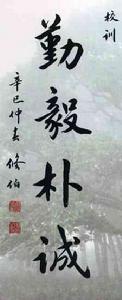 校训
勤毅朴诚
辛巳仲春 修伯